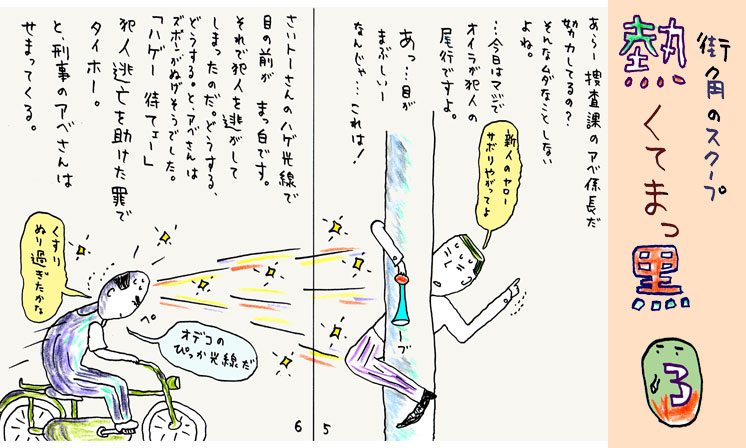 街角のスクープ
熱くてまっ黒
3
あらー捜査課のアベ係長だ
努力してるの?
そんなムダなことしない
よね。
…今日はマジで
オイラが犯人の
尾行ですよ。
あっ…目が
まぶしいー
なんじゃ…これは!
新人のヤロー
サボりやがってよ
5
さいトーさんのハゲ光線で
目の前が まっ白です。
それで犯人を逃がして
しまったのだ。どうする、
どうする。と、アベさんは
ズボンがぬげそうでした。
「ハゲー 待てェー」
犯人逃亡を助けた罪で
タイホー。
と、刑事のアベさんは
せまってくる。
くすり
ぬり過ぎたかな
ペ
オデコの
ぴっか光線だ
6